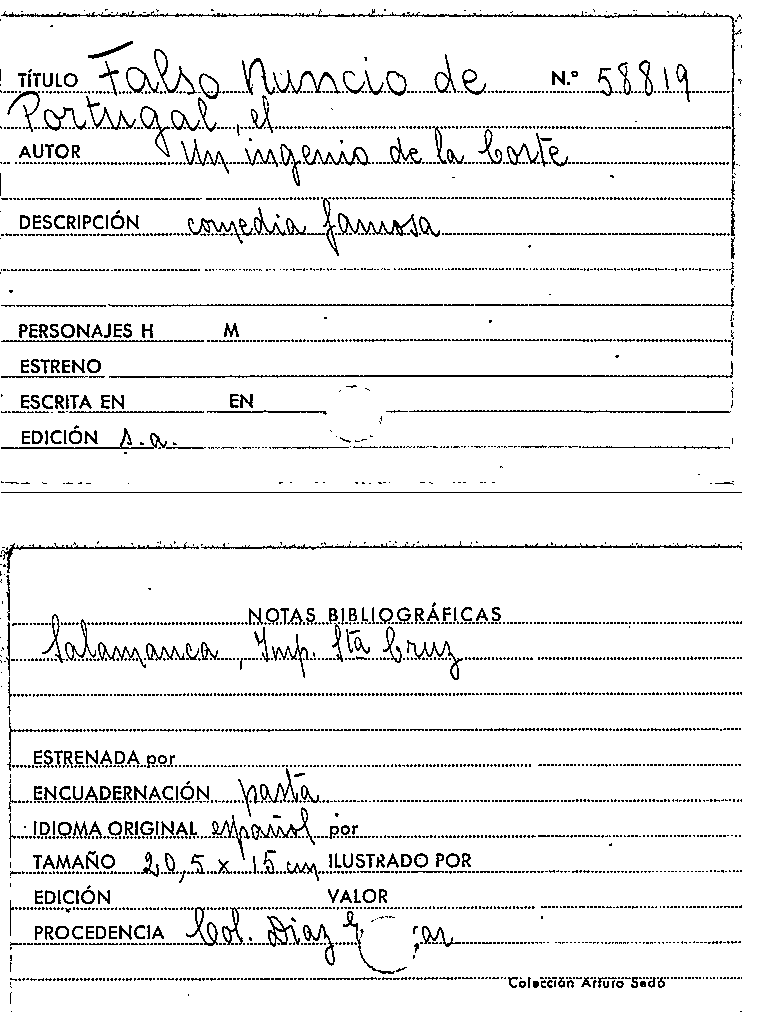 TÍTULO Falso Nuncio de N.º 58819
Portugal, el
AUTOR Un ingenio de la Corte
DESCRIPCIÓN comedia famosa
PERSONAJES H M
ESTRENO
ESCRITA EN EN
EDICIÓN s.a.
NOTAS BIBLIOGRÁFICAS
Salamanca, Imp. Sta Cruz
ESTRENADA por
ENCUADERNACIÓN pasta
IDIOMA ORIGINAL español por
TAMAÑO 20,5 x 15 cm ILUSTRADO POR
EDICIÓN VALOR
PROCEDENCIA Col. Diaz
Colección Arturo Sedó